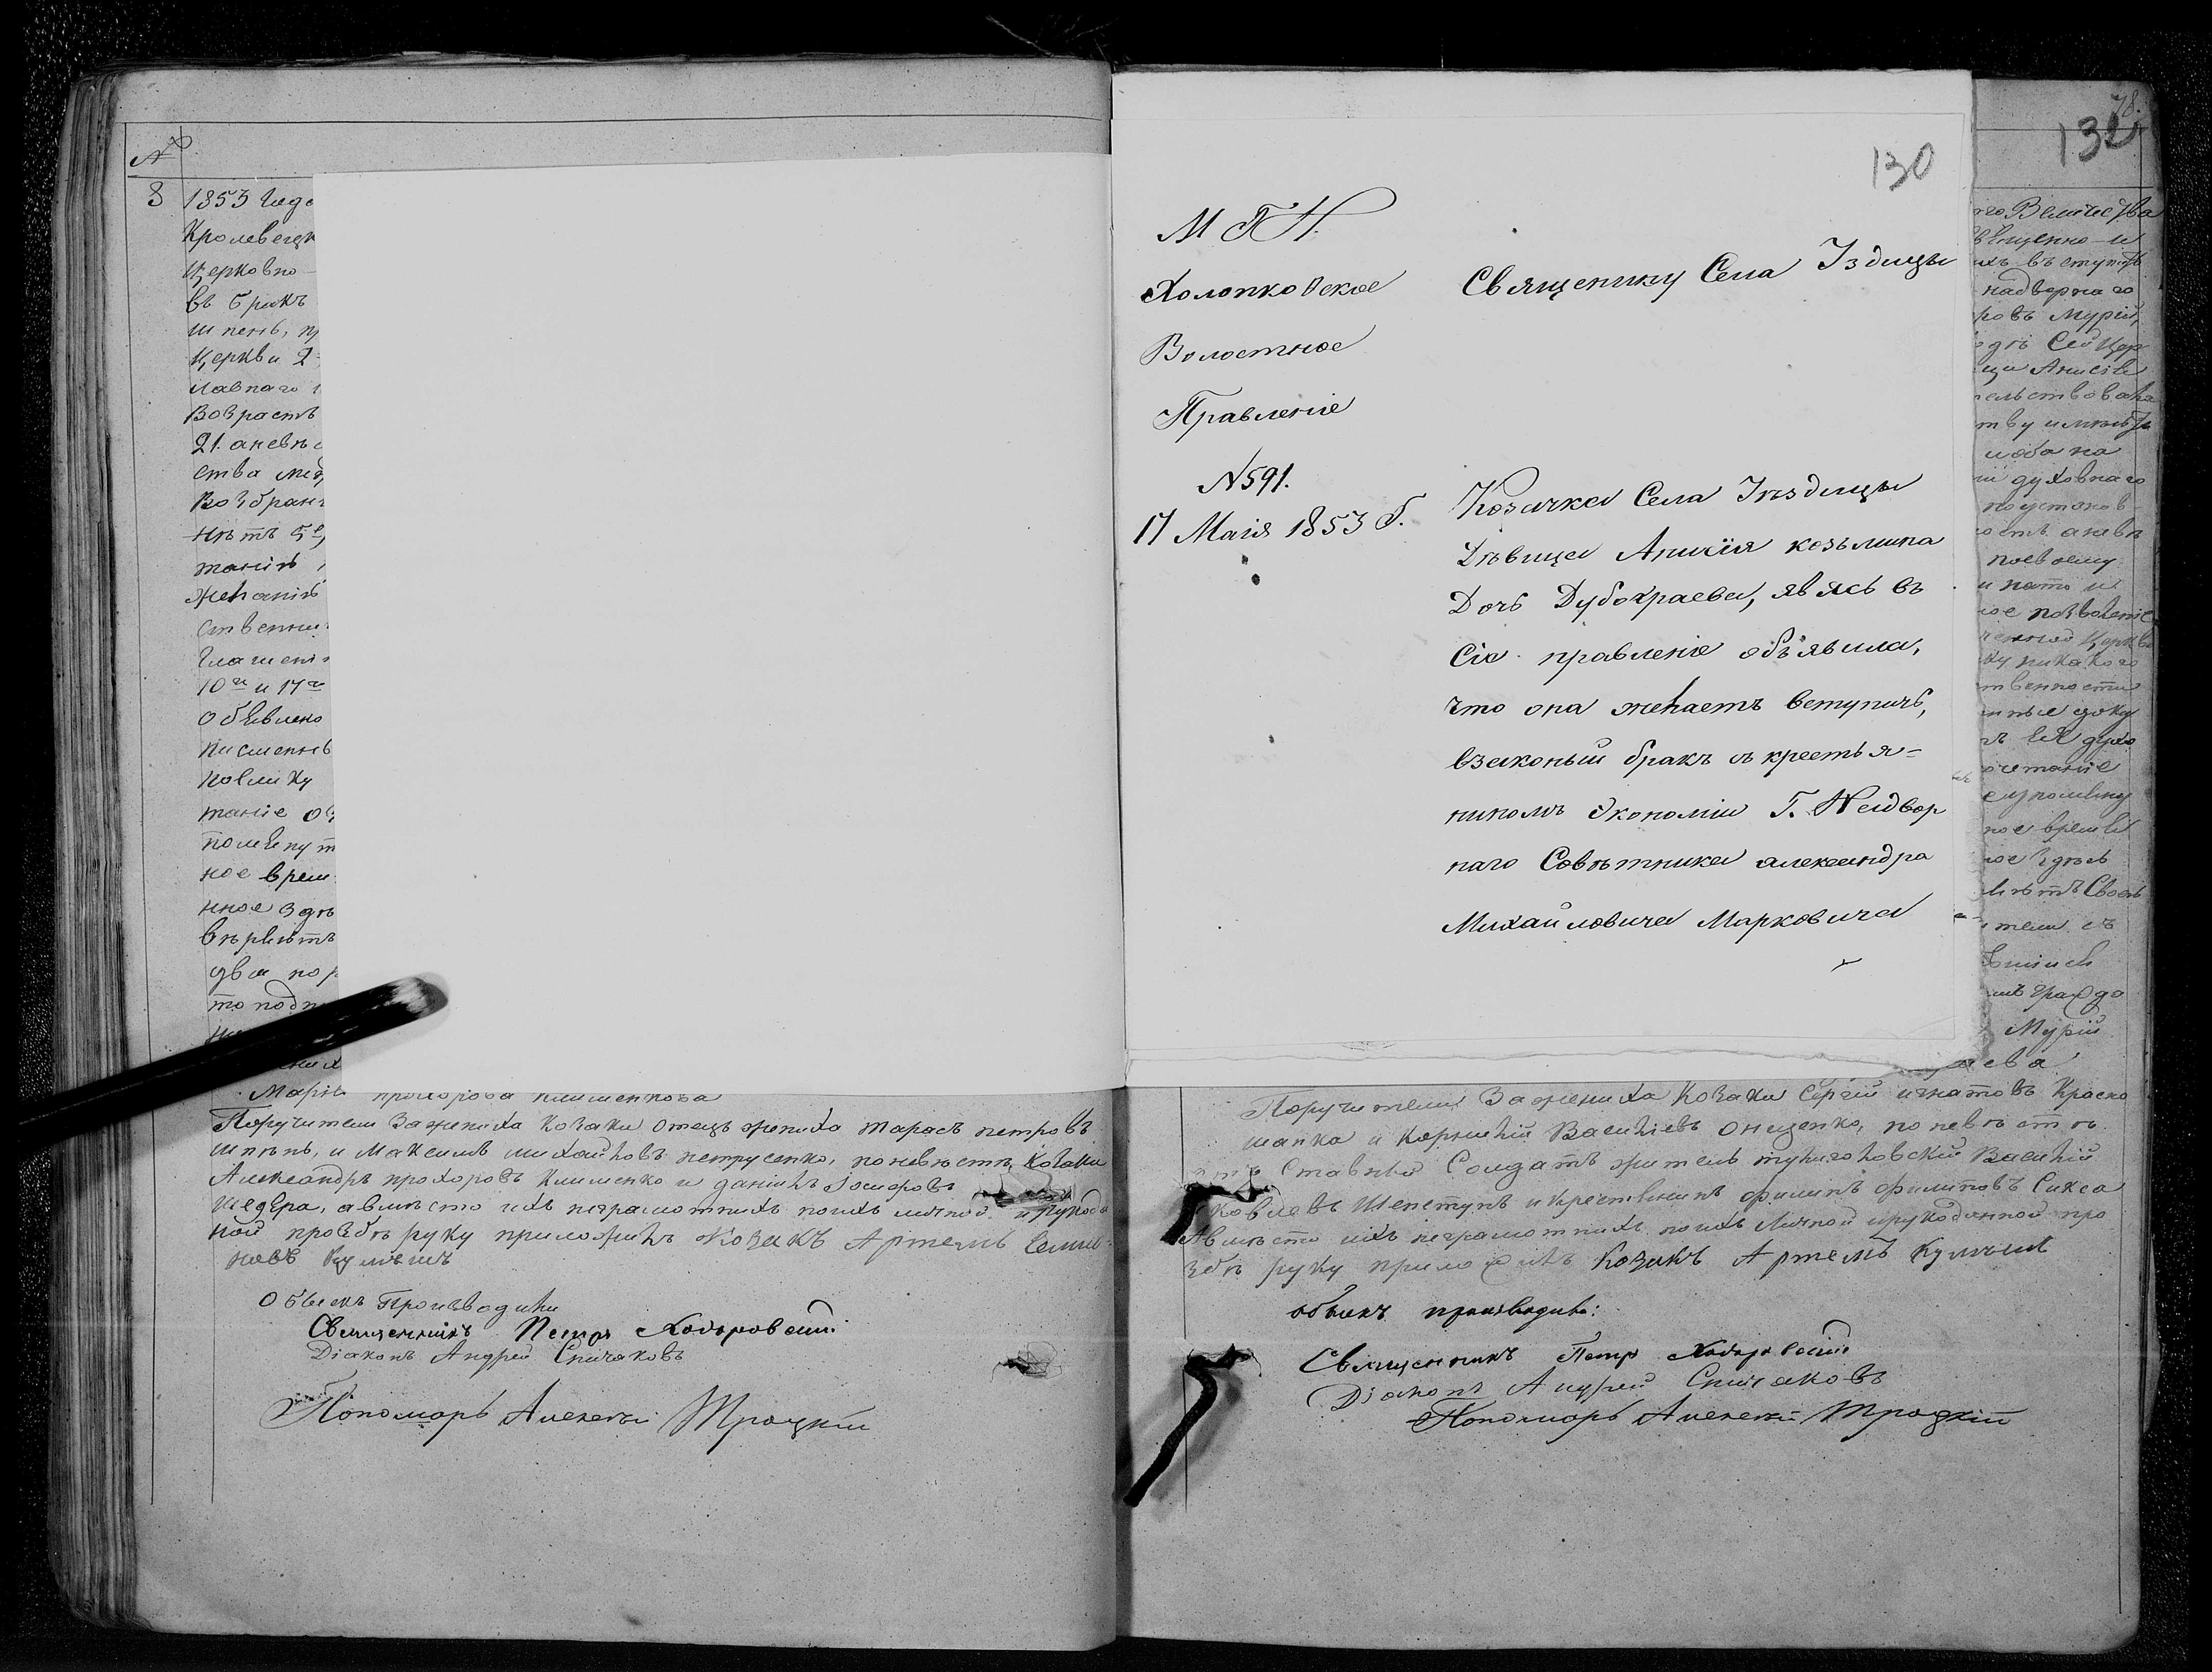 №
8 1853 Года
Кролевецк
Церковно-
въ брикъ
шпень, пр
Церкви 2
лавнаго
Возрастъ
21. аневѣс
ства межд
Возбран
нѣтъ
танію
желанію
ственни
глашені
10го и 17го
объявлено
писменнь
повлику
таніе
помѣнут
ное врем
нное здѣ
вѣряютъ
два пор
то подп
Марія прохорова клименкова
Поручители Зажениха козаки Отецъ жениха Тарасъ петровъ
шпѣнь, и Максимъ михайловъ петрусенко, поневѣстѣ, козаки
Александръ прохоровъ Клименко и данилъ
шедѣра, авмѣсто ихъ неграмотнихъ поихъ личной ирукода
ной прозбѣ руку приложилъ Козакъ Артемъ Семио
новъ Кулѣшъ
Обыскъ Производили
Священникъ Петръ Ходоровскій
Діаконъ Андрей Спичаковъ
Пономарь Алексѣй Троцкій
78.
132
130
М П И.
Холопковское
Волостное
Правленіе
№591.
17 Маія 1853 Г.
Священику Села Іздицы
Козачка Села Іѣздицы
Дѣвица Анисія козьмина
Дочь Дубохраева, явясь въ
Сіе правленіе объявила,
что она желаетъ вступить,
взаконый бракъ съ крестья-
ниномъ Экономіи Г. Надвор
наго Совѣтника александра
Михайловича Марковича
го Величества
въ ступить
надворнаго
ровъ Мурій,
Анисія
тву имѣетъ
духовнаго
поустанов
аневѣ
поевоему
и нато и
ое позволеніе
Церкви
ку никакого
твенности
нные доку
четаніе
ное время
ое здѣсь
тели съ
Мурій
аева
Поручители Зажениха Козаки Сергій игнатовъ Красно
шапка и Корнилій Василіевъ Онищенко, поневѣстѣ
Ставный Солдатъ житель тулиголовскій Василій
ковлевъ Шепетунъ икрестьянинъ филипъ филиповъ Сикса
Авмѣсто ихъ неграмотнихъ поихъ Личной ирукоданной про
збѣ руку приложилъ Козакъ Артемъ Кулѣшъ
обыскъ производили:
Священникъ Петръ Ходоровскій
Діаконъ Андрей Спичаковъ
Пономарь Алексѣй Троцкій